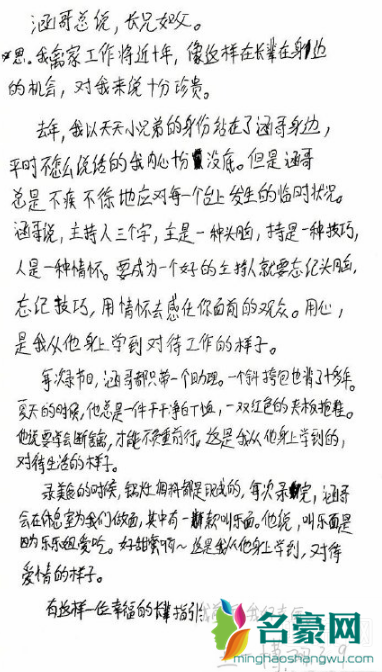 涵哥总说，长兄如父。
思。我离家工作将近十年，像这样在长辈在身边
的机会，对我来说十分珍贵。
去年，我以天天小兄弟的身份站在了涵哥身边，
平时不怎么说话的我内心十分没底。但是涵哥
总是不疾不徐地应对每一个台上发生的临时状况。
涵哥说，主持人三个字，主是一种头脑，持是一种技巧，
人是一种情怀。要成为一个好的主持人就要忘记头脑，
忘记技巧，用情怀去感任你面前的观众。用心，
是我从他身上学到对待工作的样子。
每次录节目，涵哥都只带一个助理。一个斜挎包也背了十多年。
夏天的时候，他总是一件干干净净的T恤，一双红色的夹板拖鞋。
他说要学会断舍离，才能不负重前行。这是我从他身上学到的，
对待生活的样子。
录美食的时候，锅灶调料都是现成的，每次录完，涵哥
会在休息室为我们做面，其中有一款叫乐面。他说，叫乐面是
因为乐乐姐爱吃。好甜蜜啊～这是我从他身上学到，对待
爱情的样子。
有这样一位幸福的长辈指引
名豪网
minghaoshangwu.com